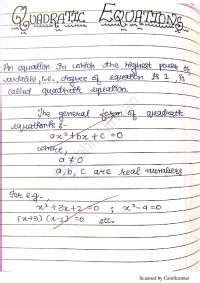 QUADRATIC EQUATIONS
An equation in which the highest power of
variable, i.e., degree of equation is 2, is
called quadratic equation.
The general form of quadratic
equation is -
ax²+bx+c=0
where,
a≠0
a,b,c are real numbers
For eg:,
x²+3x+2=0 ; x²-4=0
(x+3)(x-1)=0 etc.
Scanned by CamScanner